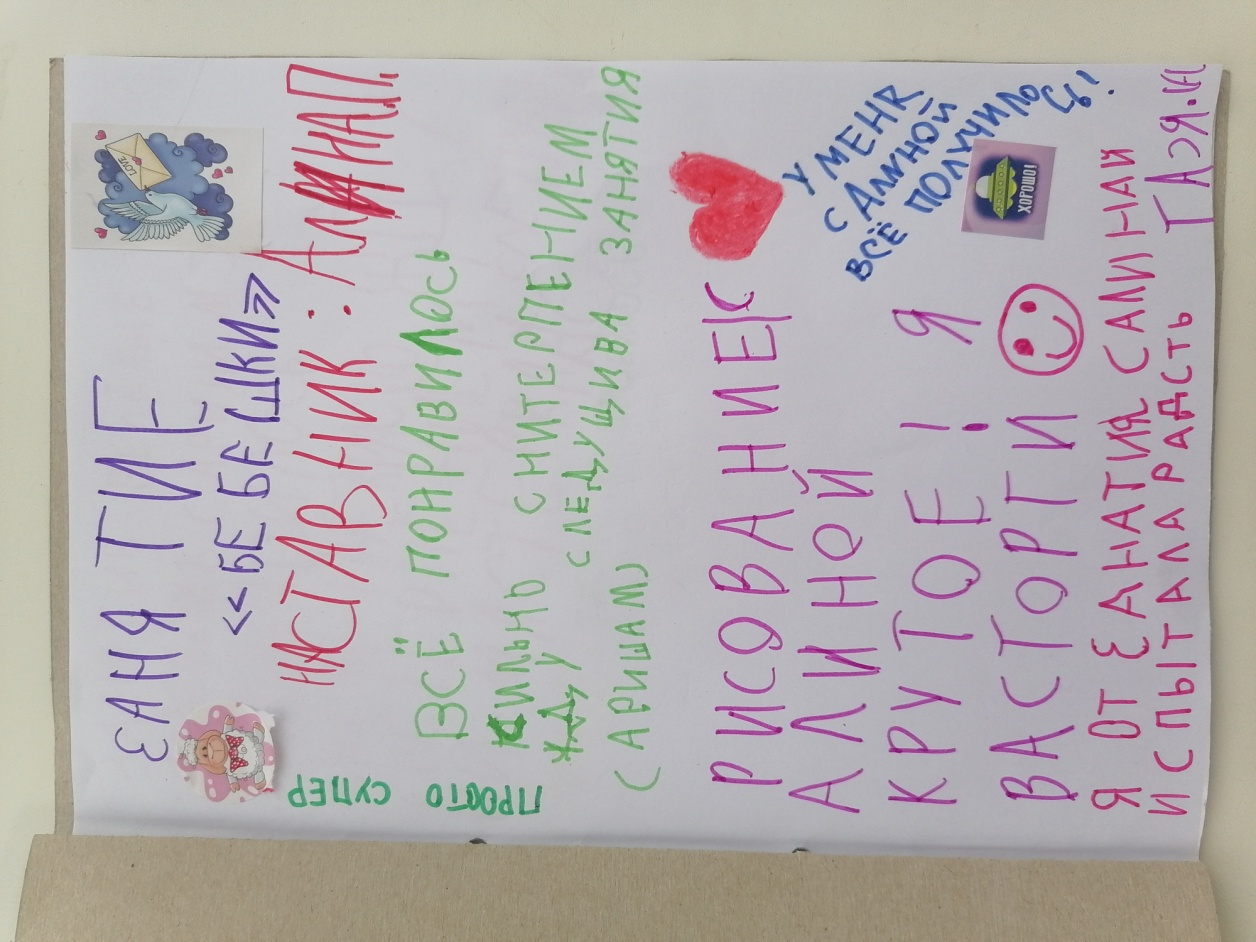 ЗАНЯТИЕ
«БЕБЕШКИ»
НАСТАВНИК: АЛИНА П.
LOVE
ВСЁ ПОНРАВИЛОСЬ
СИЛЬНО СНИТЕРПЕНИЕМ
ЖДУ СЛЕДУЩИВА ЗАНЯТИЯ
(АРИША М)
ПРОСТО СУПЕР
РИСОВАНИЕ К
АЛИНОЙ
КРУТОЕ! Я
ВАСТОРГИ
У МЕНЯ
С АЛИНОЙ
ВСЁ ПОЛУЧИЛО
СЬ!
ХОРОШО!
Я ОТ ЗАНАТИЯ САЛИНАЙ
ИСПЫТАЛА РАДСТЬ